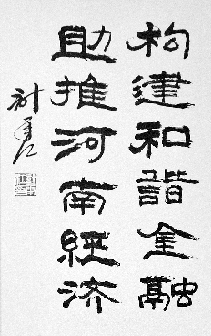 构建和谐金融
助推河南经济